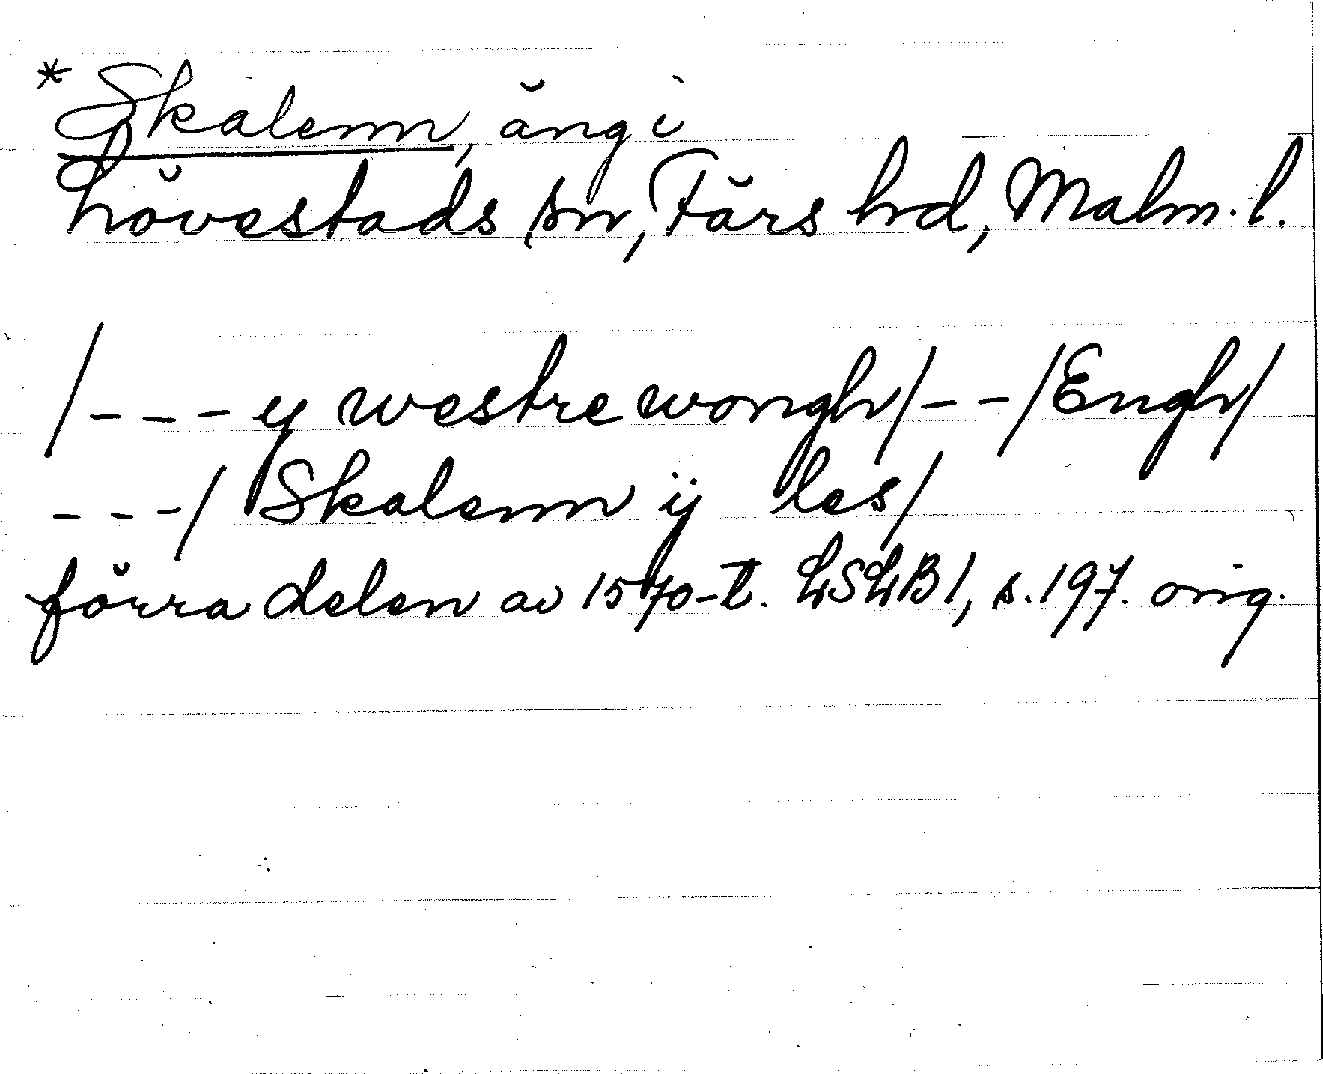 * Skalenn, äng i
Lövestads sn, Färs hd, Malm. l.
/--- y westre wongh/--/Engh/
---/ Skalenn ij les/
förra delen av 1570-t. LSLB1, s. 197. orig.